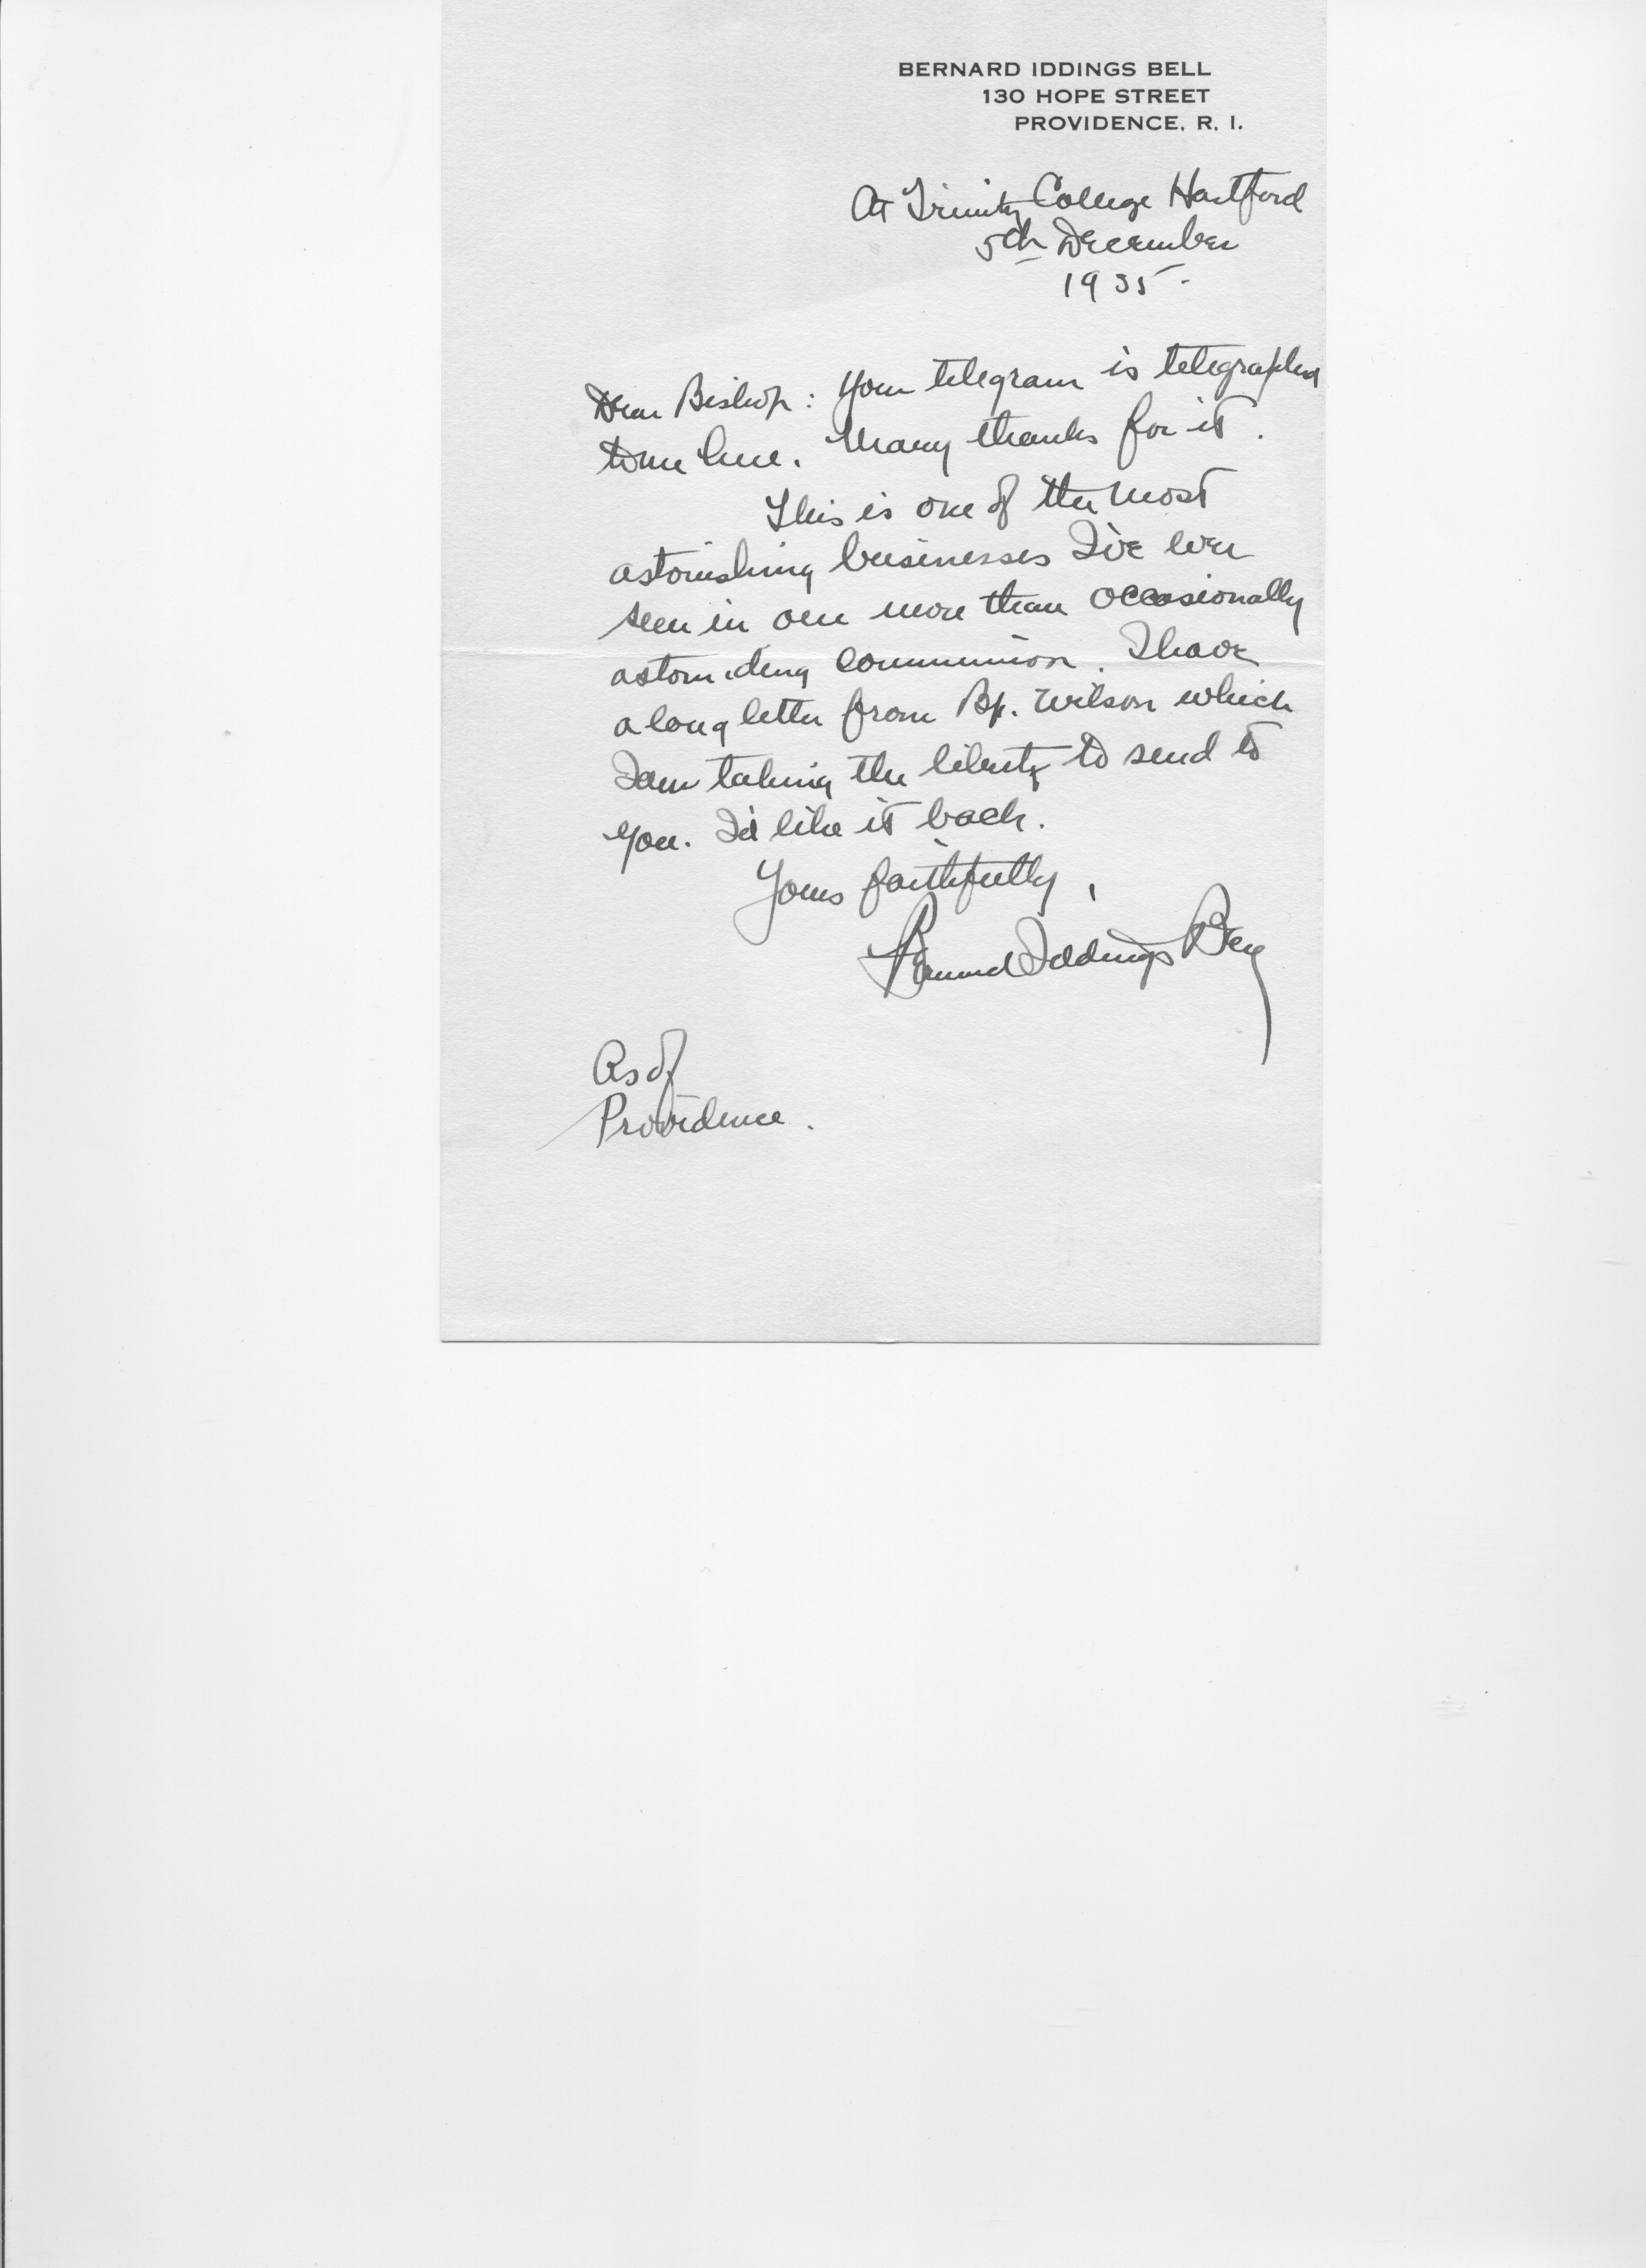 BERNARD IDDINGS BELL
130 HOPE STREET
PROVIDENCE, R. I.
At Trinity College Hartford
5th December
1935.
Dear Bishop: Your telegram is telegraphed
to me here. Many thanks for it.
This is one of the most
astonishing businesses I've ever
seen in our more than occasionally
astounding communion. I have
a long letter from Bp. Wilson which
I am taking the liberty to send to
you. I'd like it back.
Yours faithfully,
Bernard Iddings Bell
As of
Providence.